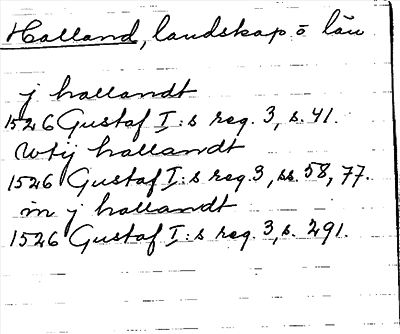 Halland, landskap o län
j hallandt
1526 Gustaf I:s reg. 3, s. 41.
wtij hallandt
1526 Gustaf I:s reg. 3, ss. 58, 77.
in j hallandt
1526 Gustaf I:s reg. 3, s. 291.